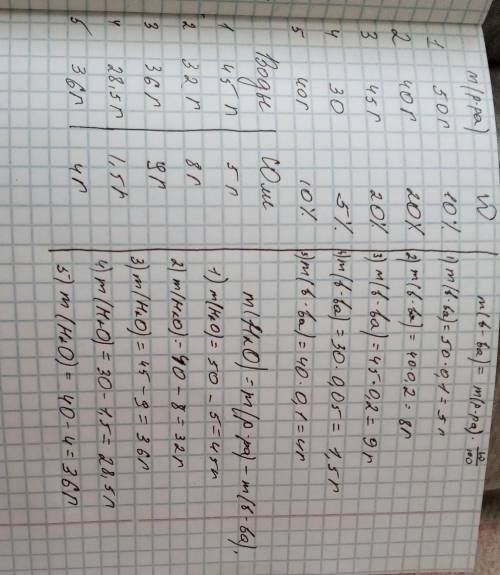 m(р-ра) W m(в-ва) = m(р-ра) · w/100
1 50г 10% 1) m(в-ва) = 50 · 0,1 = 5г
2 40г 20% 2) m(в-ва) = 40 0,2 = 8г
3 45г 20% 3) m(в-ва) = 45 · 0,2 = 9г
4 30 5% 4) m(в-ва) = 30 · 0,05 = 1,5г
5 40г 10% 5) m(в-ва) = 40 · 0,1 = 4г
Воды Соли m(H₂O) = m(р-ра) - m(в-ва).
1 45г 5г 1) m(H₂O) = 50 - 5 = 45г
2 32г 8г 2) m(H₂O) = 40 - 8 = 32г
3 36г 9г 3) m(H₂O) = 45 - 9 = 36г
4 28,5г 1,5г 4) m(H₂O) = 30 - 1,5 = 28,5г
5 36г 4г 5) m(H₂O) = 40 - 4 = 36г